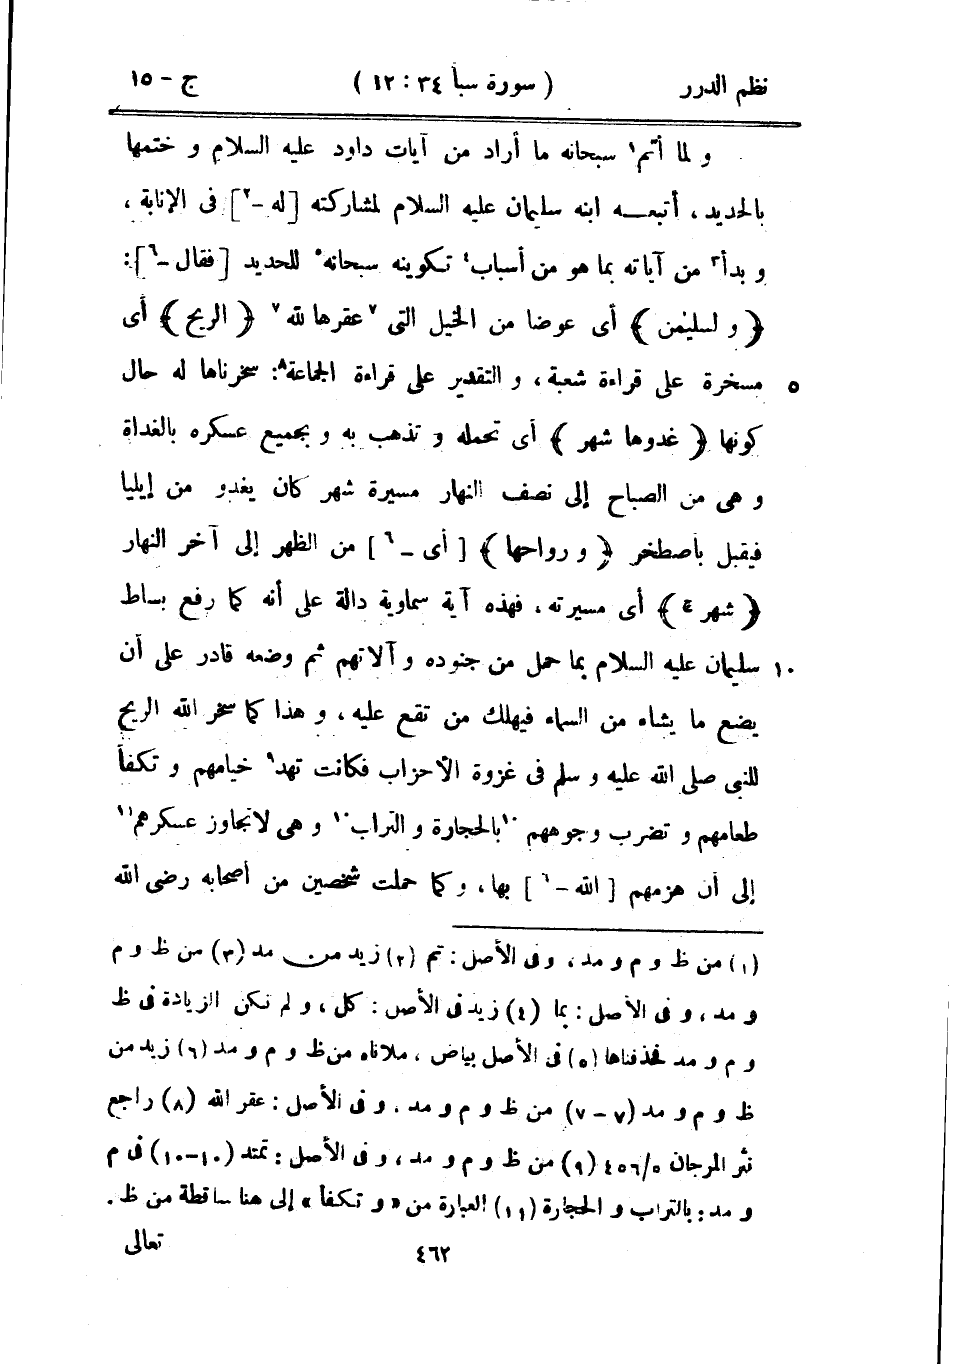 نظم الدرر ( سورة سبأ ٣٤ : ١٢ ) ج - ١٥
و لما أتم١ سبحانه ما أراد من آيات داود عليه السلام و ختمها
بالحديد ، أتبعـه ابنه سليمان عليه السلام لمشاركته [له -٢] فى الإنابة ،
و بدأ٣ من آياته بما هو من أسباب٤ تكوينه سبحانه٥ للحديد [فقال -٦] :
﴿ و لسليمٰن ﴾ أى عوضا من الخيل التى ٧عقرها لله٧ ﴿ الريح ﴾ أى
٥ مسخرة على قراءة شعبة ، و التقدير على قراءة الجماعة٨: سخرناها له حال
كونها ﴿ غدوها شهر ﴾ أى تحمله و تذهب به و بجميع عسكره بالغداة
و هى من الصباح إلى نصف النهار مسيرة شهر كان يغدو من إيليا
فيقبل بأصطخر ﴿ و رواحها ﴾ [ أى -٦ ] من الظهر إلى آخر النهار
﴿ شهر ج ﴾ أى مسيرته ، فهذه آية سماوية دالة على أنه كما رفع بساط
١٠ سليمان عليه السلام بما حمل من جنوده و آلاتهم ثم وضعه قادر على أن
يضع ما يشاء من السماء فيهلك من تقع عليه ، و هذا كما سخر الله الريح
للنبى صلى الله عليه و سلم فى غزوة الأحزاب فكانت تهد٩ خيامهم و تكفأ
طعامهم و تضرب وجوههم ١٠بالحجارة و التراب١٠ و هى لاتجاوز عسكرهم١١
إلى أن هزمهم [ الله -٦ ] بها ، و كما حملت شخصين من أصحابه رضى الله
(١) من ظ و م و مد ، و فى الأصل : تم (٢) زيد من مد (٣) من ظ و م
و مد ، و فى الأصل : بما (٤) زيد فى الأصل : كل ، و لم تكن الزيادة فى ظ
و م و مد فحذفناها (٥) فى الأصل بياض ، ملأناه من ظ و م و مد (٦) زيد من
ظ و م و مد (٧ – ٧) من ظ و م و مد ، و فى الأصل : عقر الله (٨) راجع
نثر المرجان ٥/٤٥٦ (٩) من ظ و م و مد ، و فى الأصل : تمتد (١٠–١٠) فى م
و مد : بالتراب و الحجارة (١١) العبارة من « و تكفأ » إلى هنا ساقطة من ظ .
٤٦٢ تعالى